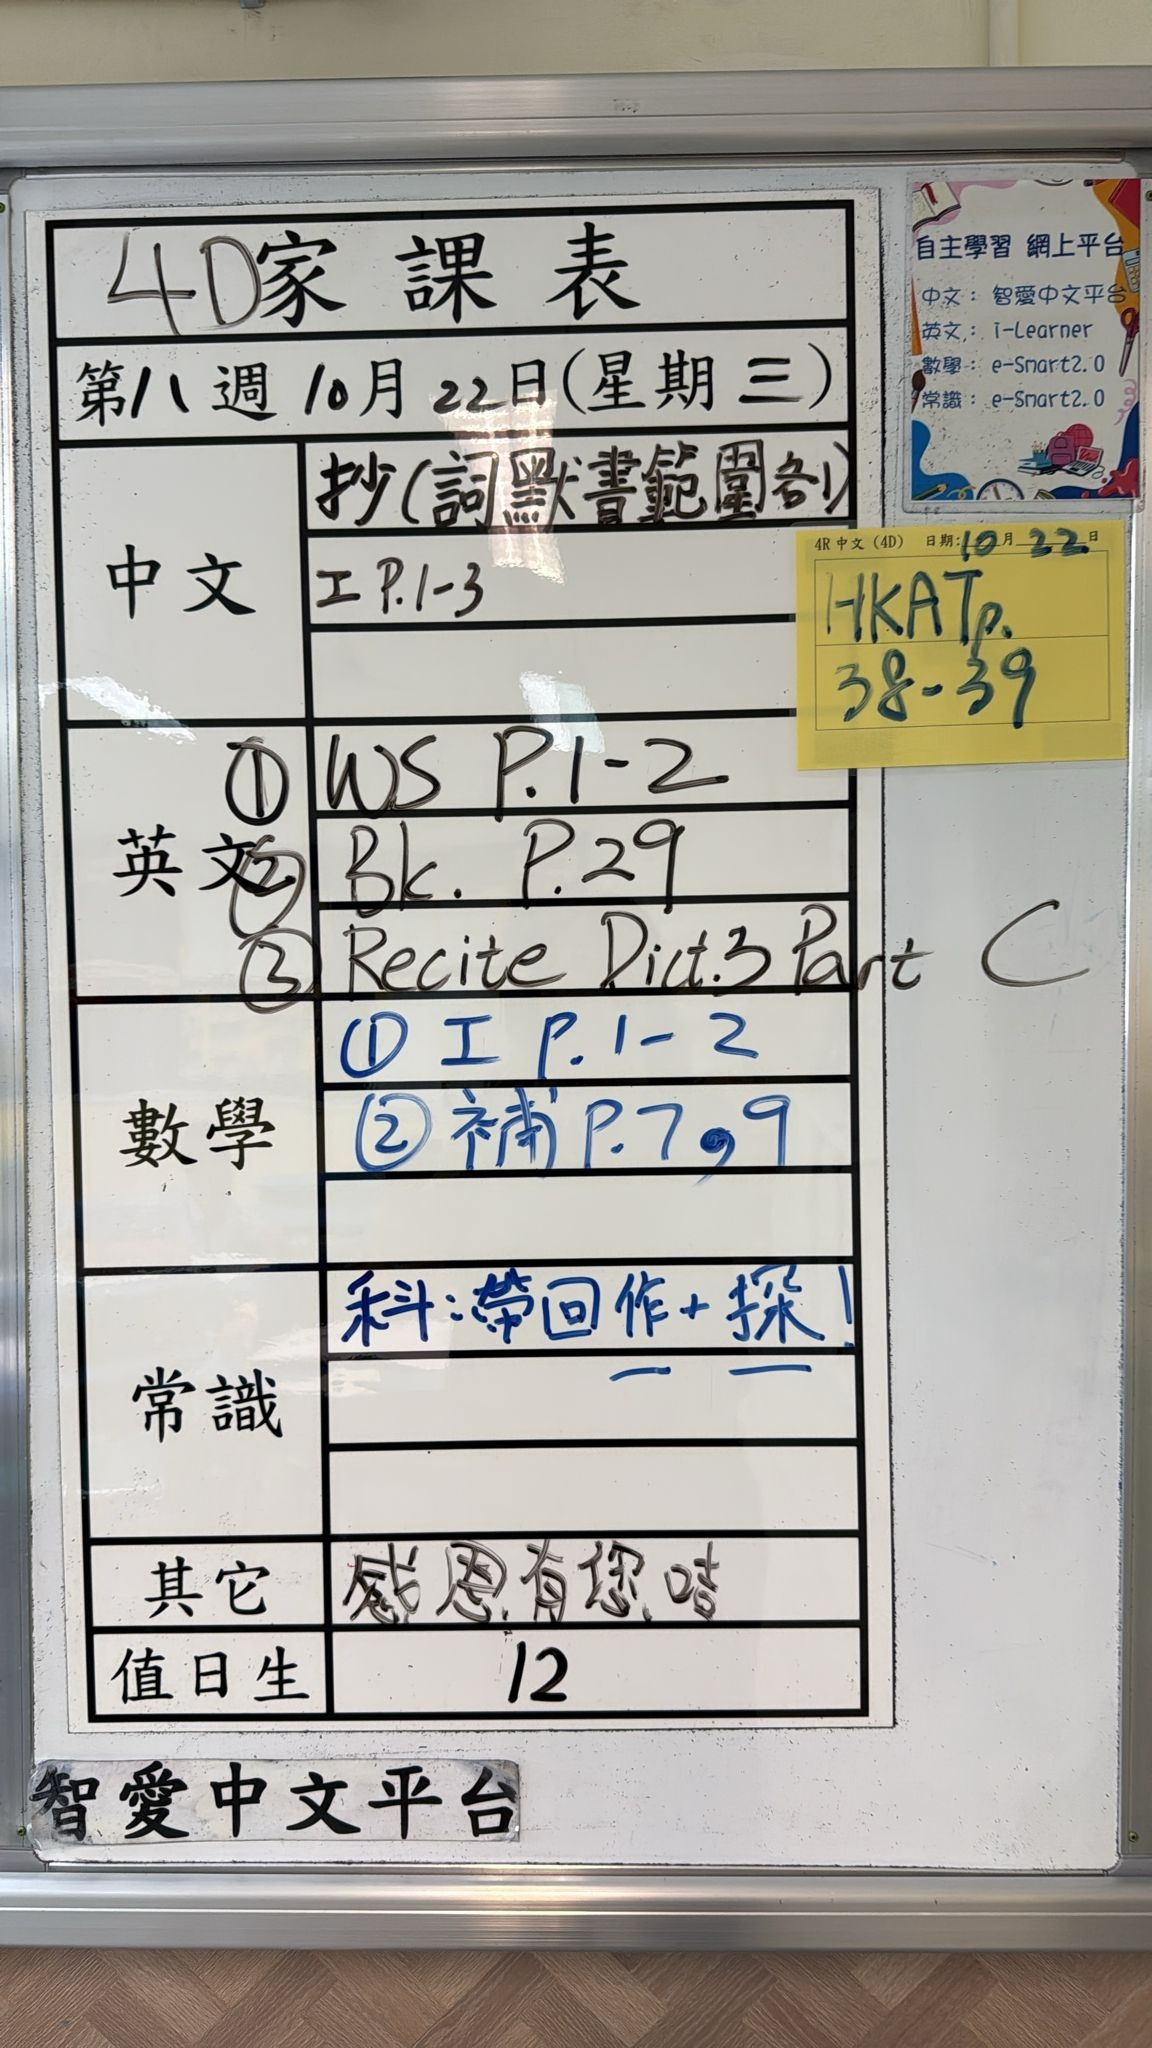 4D家課表
第八週 10月22日(星期三)
中文
抄(詞默書範圍各1)
工 P.1-3
英文
① WS P.1-2
② Bk. P.29
③ Recite Dict.3 Part C
數學
① 工 P.1-2
② 補 P.7,9
常識
科:帶回作+探!
其它
感恩有您咭
值日生
12
智愛中文平台
自主學習 網上平台
中文: 智愛中文平台
英文: i-Learner
數學: e-Smart2.0
常識: e-Smart2.0
4R 中文 (4D) 日期:10月22日
HKAT p.
38-39